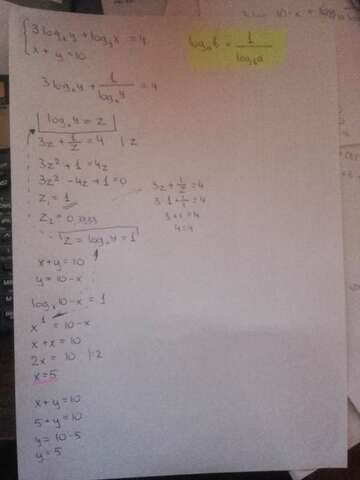 { 3 logₓy + log_y x = 4
x + y = 10
logₐb = 1/log_b a
3 logₓy + 1/logₓy = 4
logₓy = z
3z + 1/z = 4 | z
3z² + 1 = 4z
3z² - 4z + 1 = 0
z₁ = 1
z₂ = 0,33
z = logₓy = 1
3z + 1/z = 4
3·1 + 1/1 = 4
3 + 1 = 4
4 = 4
x + y = 10
y = 10 - x
logₓ10 - x = 1
x¹ = 10 - x
x + x = 10
2x = 10 |:2
x = 5
x + y = 10
5 + y = 10
y = 10 - 5
y = 5